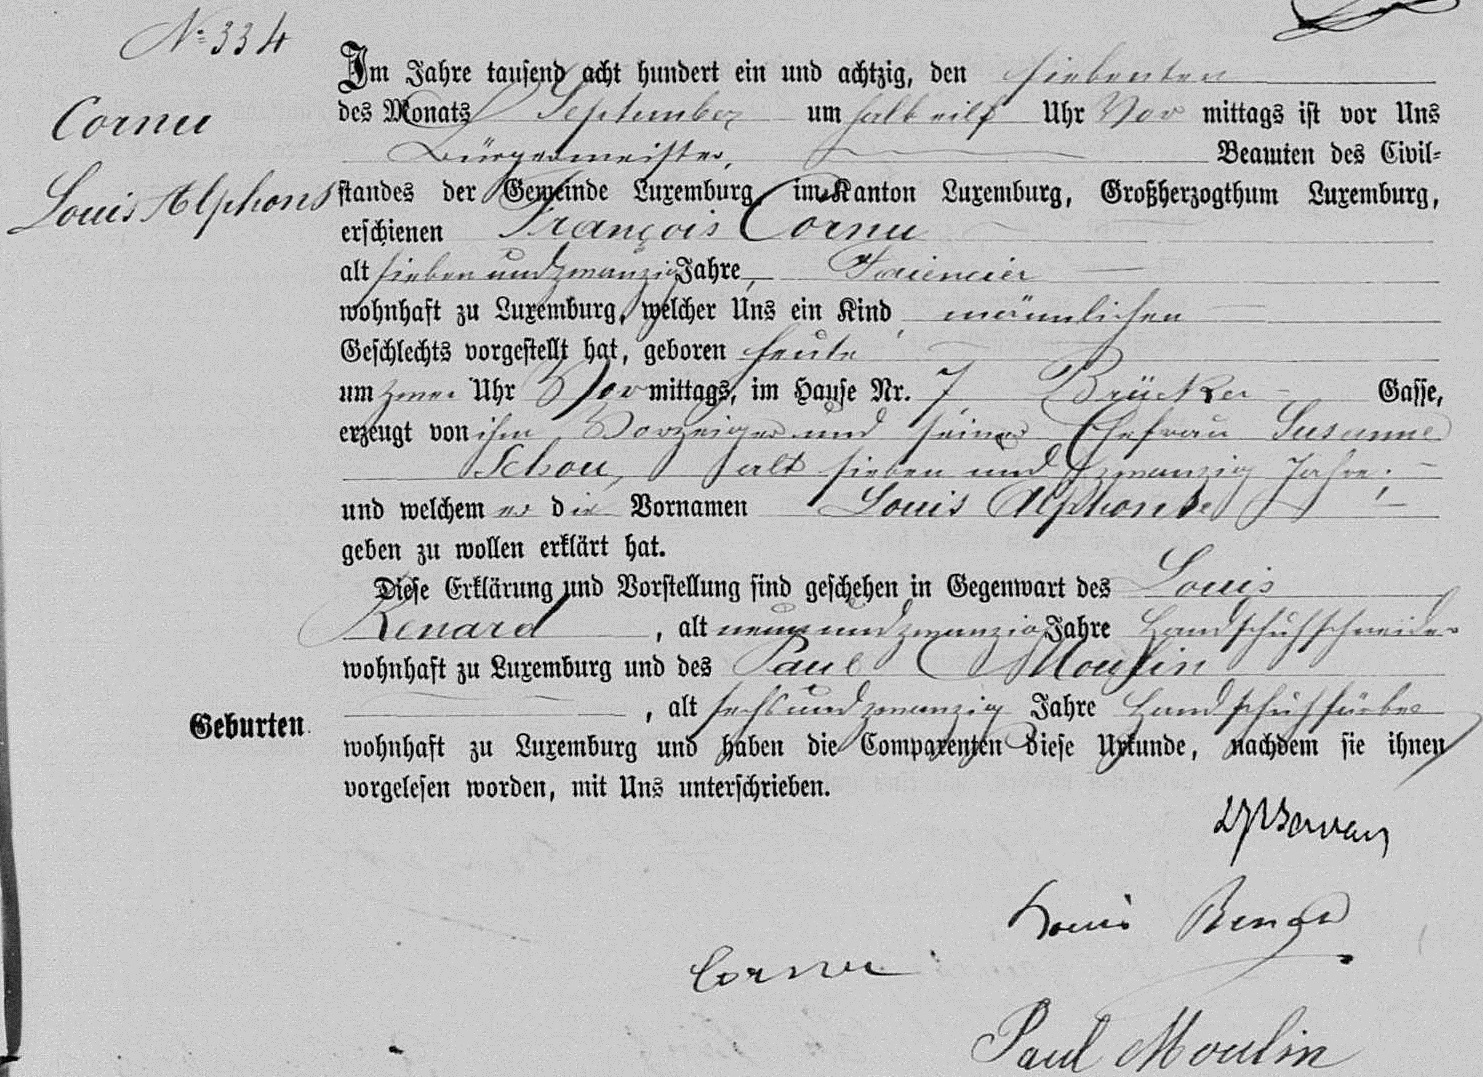 N° 334
Cornu
Louis Alphons
Im Jahre tausend acht hundert ein und achtzig, den siebenten
des Monats September um halb eilf Uhr Vor mittags ist vor Uns
Bürgermeister, Beamten des Civil=
standes der Gemeinde Luxemburg im Kanton Luxemburg, Großherzogthum Luxemburg,
erschienen François Cornu
alt sieben und zwanzig Jahre, Faiencier
wohnhaft zu Luxemburg, welcher Uns ein Kind männlichen
Geschlechts vorgestellt hat, geboren heute
um zwei Uhr Vor mittags, im Hause Nr. 7 Brücker Gasse,
erzeugt von ihm Vorzeiger und seiner Ehefrau Susanne
Schou, alt sieben und zwanzig Jahre;
und welchem er die Vornamen Louis Alphonse
geben zu wollen erklärt hat.
Diese Erklärung und Vorstellung sind geschehen in Gegenwart des Louis
Renard, alt neun und zwanzig Jahre Handschuhschneider
wohnhaft zu Luxemburg und des Paul Moulin
, alt sechs und zwanzig Jahre Handschuhfärber
Geburten.
wohnhaft zu Luxemburg und haben die Comparenten diese Urkunde, nachdem sie ihnen
vorgelesen worden, mit Uns unterschrieben.
Louis Renard
Cornu
Paul Moulin